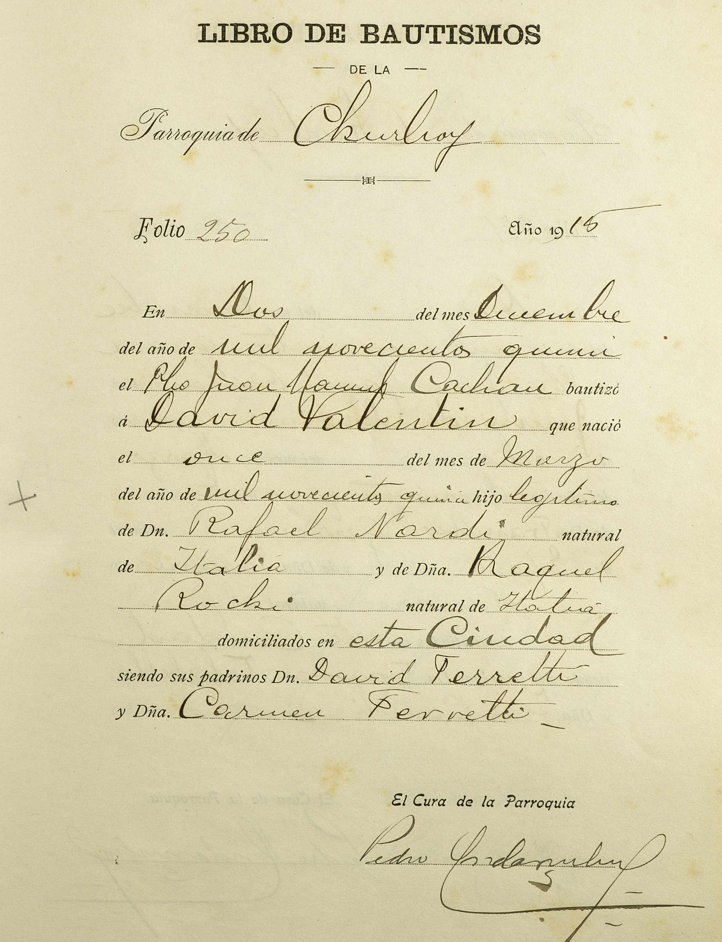 LIBRO DE BAUTISMOS
DE LA
Parroquia de
Folio 250 Año 1915
En Dos del mes Diciembre
del año de mil novecientos quince
el Pbo Juan Manuel Cachau bautizó
á David Valentin que nació
el once del mes de Marzo
del año de mil novecientos quince hijo legitimo
de Dn. Rafael Nardi natural
de Italia y de Dña. Raquel
Rocki natural de Italia
domiciliados en esta Ciudad
siendo sus padrinos Dn. David Ferretti
y Dña. Carmen Ferretti
El Cura de la Parroquia
Pedro